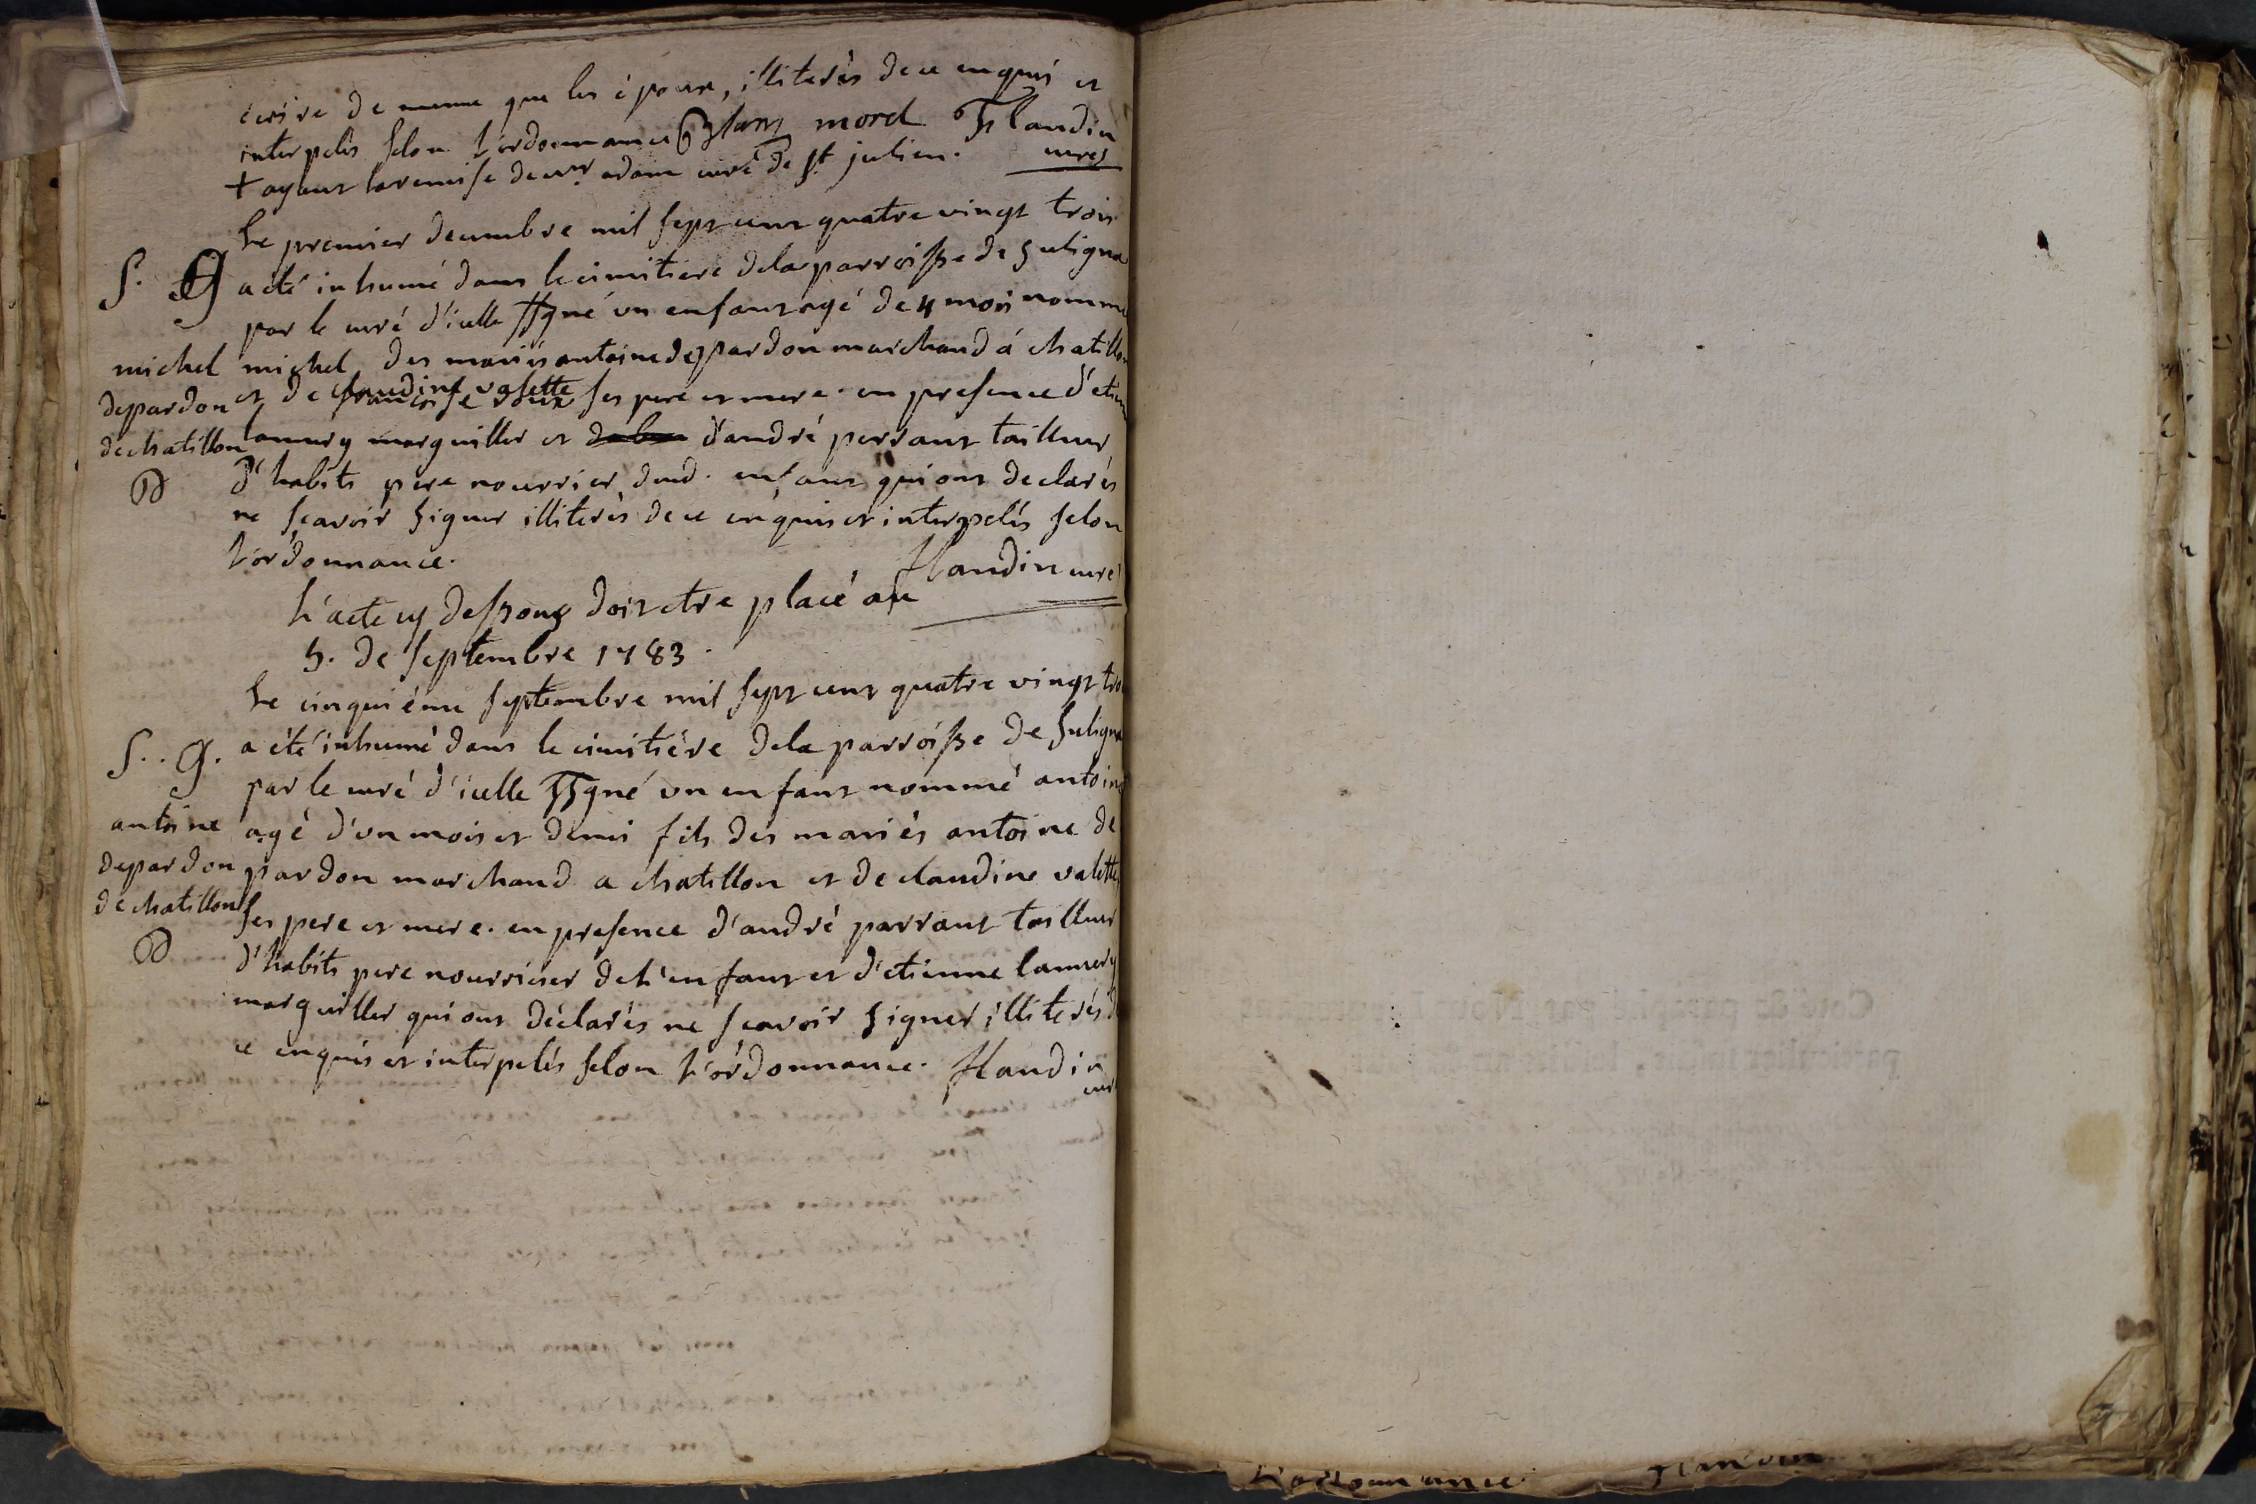 écrire de meme que les époux, illiterés de ce enquis et
interpelés selon l'ordonnance mord Flandin
curé
+ ayant la remise de mr adam curé de st julien.
Le premier decembre mil sept cent quatre vingt trois
S. G
a eté inhumé dans le cimitiere dela parroisse de Suligna
par le curé d'icelle ssgné un enfant agé de 4 mois nommé
michel michel des mariés antoine depardon marchand á chatillon
depardon et de claudine valette ses pere et mere. en presence d'etien
dechatillon lamury marguiller et d'andré perrant tailleur
D d'habits pere nourrier dud. enfant qui ont declarés
ne scavoir signer illiterés de ce enquis et interpelés selon
l'ordonnance.
Flandin curé
L'acte cy dessous doit etre placé au
5. de septembre 1783.
Le cinquiéme septembre mil sept cent quatre vingt tro
S.. G. a été inhumé dans le cimitiére dela parroisse de Suligna
par le curé d'icelle ssgné un enfant nommé antoine
antoine agé d'un mois et demi fils des mariés antoine de
depardon pardon marchand a chatillon et de claudine valette
de chatillon ses pere et mere. en presence d'andré parrant tailleur
D d'habits pere nourricier de l'enfant et d'etienne lamury
marguiller qui ont déclarés ne scavoir signer illiterés d
ce enquis et interpelés selon l'ordonnance. Flandin
curé
L'ordonnance Flandin